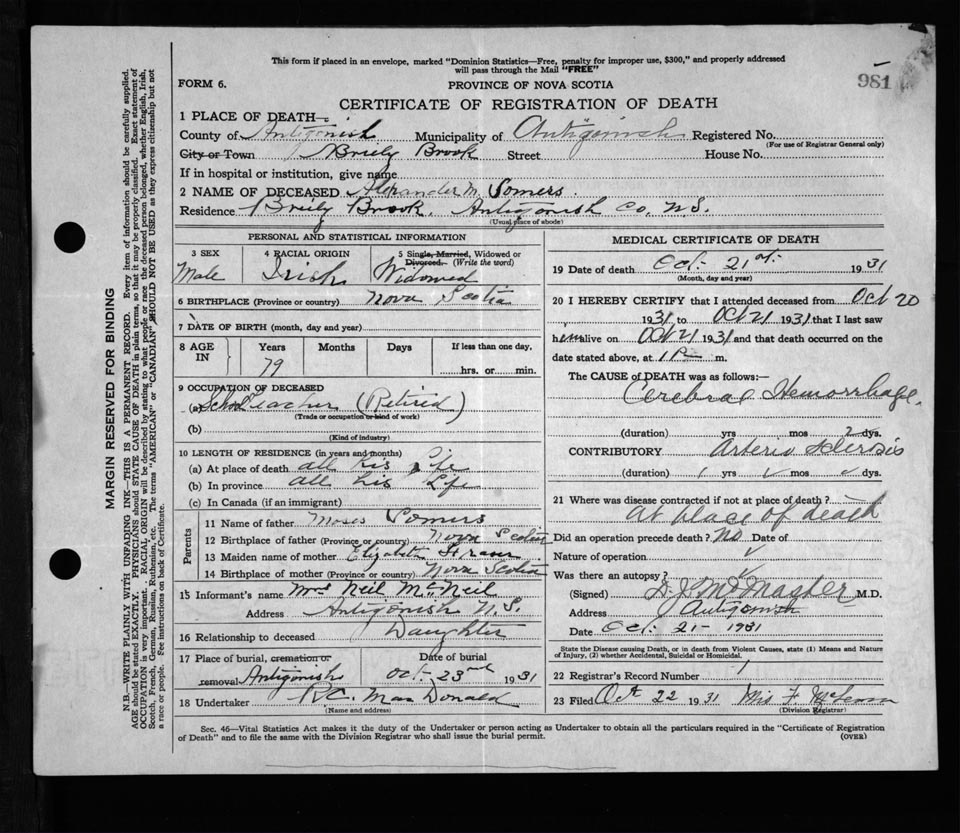 This form if placed in an envelope, marked "Dominion Statistics—Free, penalty for improper use, $300," and properly addressed
will pass through the Mail "FREE"
981
FORM 6.
PROVINCE OF NOVA SCOTIA
CERTIFICATE OF REGISTRATION OF DEATH
1 PLACE OF DEATH—
County of Antigonish Municipality of Antigonish Registered No.
(For use of Registrar General only)
City or Town Briely Brook Street House No.
If in hospital or institution, give name
2 NAME OF DECEASED Alexander M. Somers
Residence Briely Brook, Antigonish Co. N.S.
(Usual place of abode)
PERSONAL AND STATISTICAL INFORMATION
3 SEX 4 RACIAL ORIGIN 5 Single, Married, Widowed or
Divorced. (Write the word)
Male Irish Widowed
6 BIRTHPLACE (Province or country) Nova Scotia
7 DATE OF BIRTH (month, day and year)
8 AGE IN Years Months Days If less than one day,
79 hrs. or min.
9 OCCUPATION OF DECEASED
(a) School Teacher (Retired)
(Trade or occupation or kind of work)
(b)
(Kind of industry)
10 LENGTH OF RESIDENCE (in years and months)
(a) At place of death all his Life
(b) In province all his Life
(c) In Canada (if an immigrant)
Parents
11 Name of father Moses Somers
12 Birthplace of father (Province or country) Nova Scotia
13 Maiden name of mother Elizabeth Fraser
14 Birthplace of mother (Province or country) Nova Scotia
15 Informant's name Mrs Neil McNeil
Address Antigonish N.S.
16 Relationship to deceased Daughter
17 Place of burial, cremation or Date of burial
removal Antigonish Oct. 23rd 1931
18 Undertaker R.C. MacDonald
(Name and address)
MEDICAL CERTIFICATE OF DEATH
19 Date of death Oct. 21st. 1931
(Month, day and year)
20 I HEREBY CERTIFY that I attended deceased from Oct 20
1931 to Oct 21 1931 that I last saw
him alive on Oct 21 1931 and that death occurred on the
date stated above, at 1 P. m.
The CAUSE of DEATH was as follows:
Cerebral Hemorrhage.
(duration) yrs mos 2 dys.
CONTRIBUTORY Arterio Sclerosis
(duration) yrs mos dys.
21 Where was disease contracted if not at place of death?
At place of death
Did an operation precede death? No Date of
Nature of operation
Was there an autopsy?
(Signed) M.D.
Address Antigonish
Date Oct. 21 - 1931
State the Disease causing Death, or in death from Violent Causes, state (1) Means and Nature
of Injury, (2) whether Accidental, Suicidal or Homicidal.
22 Registrar's Record Number
23 Filed Oct 22 1931 Mis F.
(Division Registrar)
Sec. 46—Vital Statistics Act makes it the duty of the Undertaker or person acting as Undertaker to obtain all the particulars required in the "Certificate of Registration
of Death" and to file the same with the Division Registrar who shall issue the burial permit.
(OVER)
MARGIN RESERVED FOR BINDING
N.B.—WRITE PLAINLY WITH UNFADING INK—THIS IS A PERMANENT RECORD. Every item of information should be carefully supplied.
AGE should be stated EXACTLY. PHYSICIANS should STATE CAUSE OF DEATH in plain terms, so that it may be properly classified. Exact statement of
OCCUPATION is very important. RACIAL ORIGIN will be described by stating to what people or race the deceased person belonged, whether English, Irish,
Scotch, French, German, Russian, Ruthenian, etc. The terms "AMERICAN" or "CANADIAN" SHOULD NOT BE USED as they express citizenship but not
a race or people. See instructions on back of Certificate.